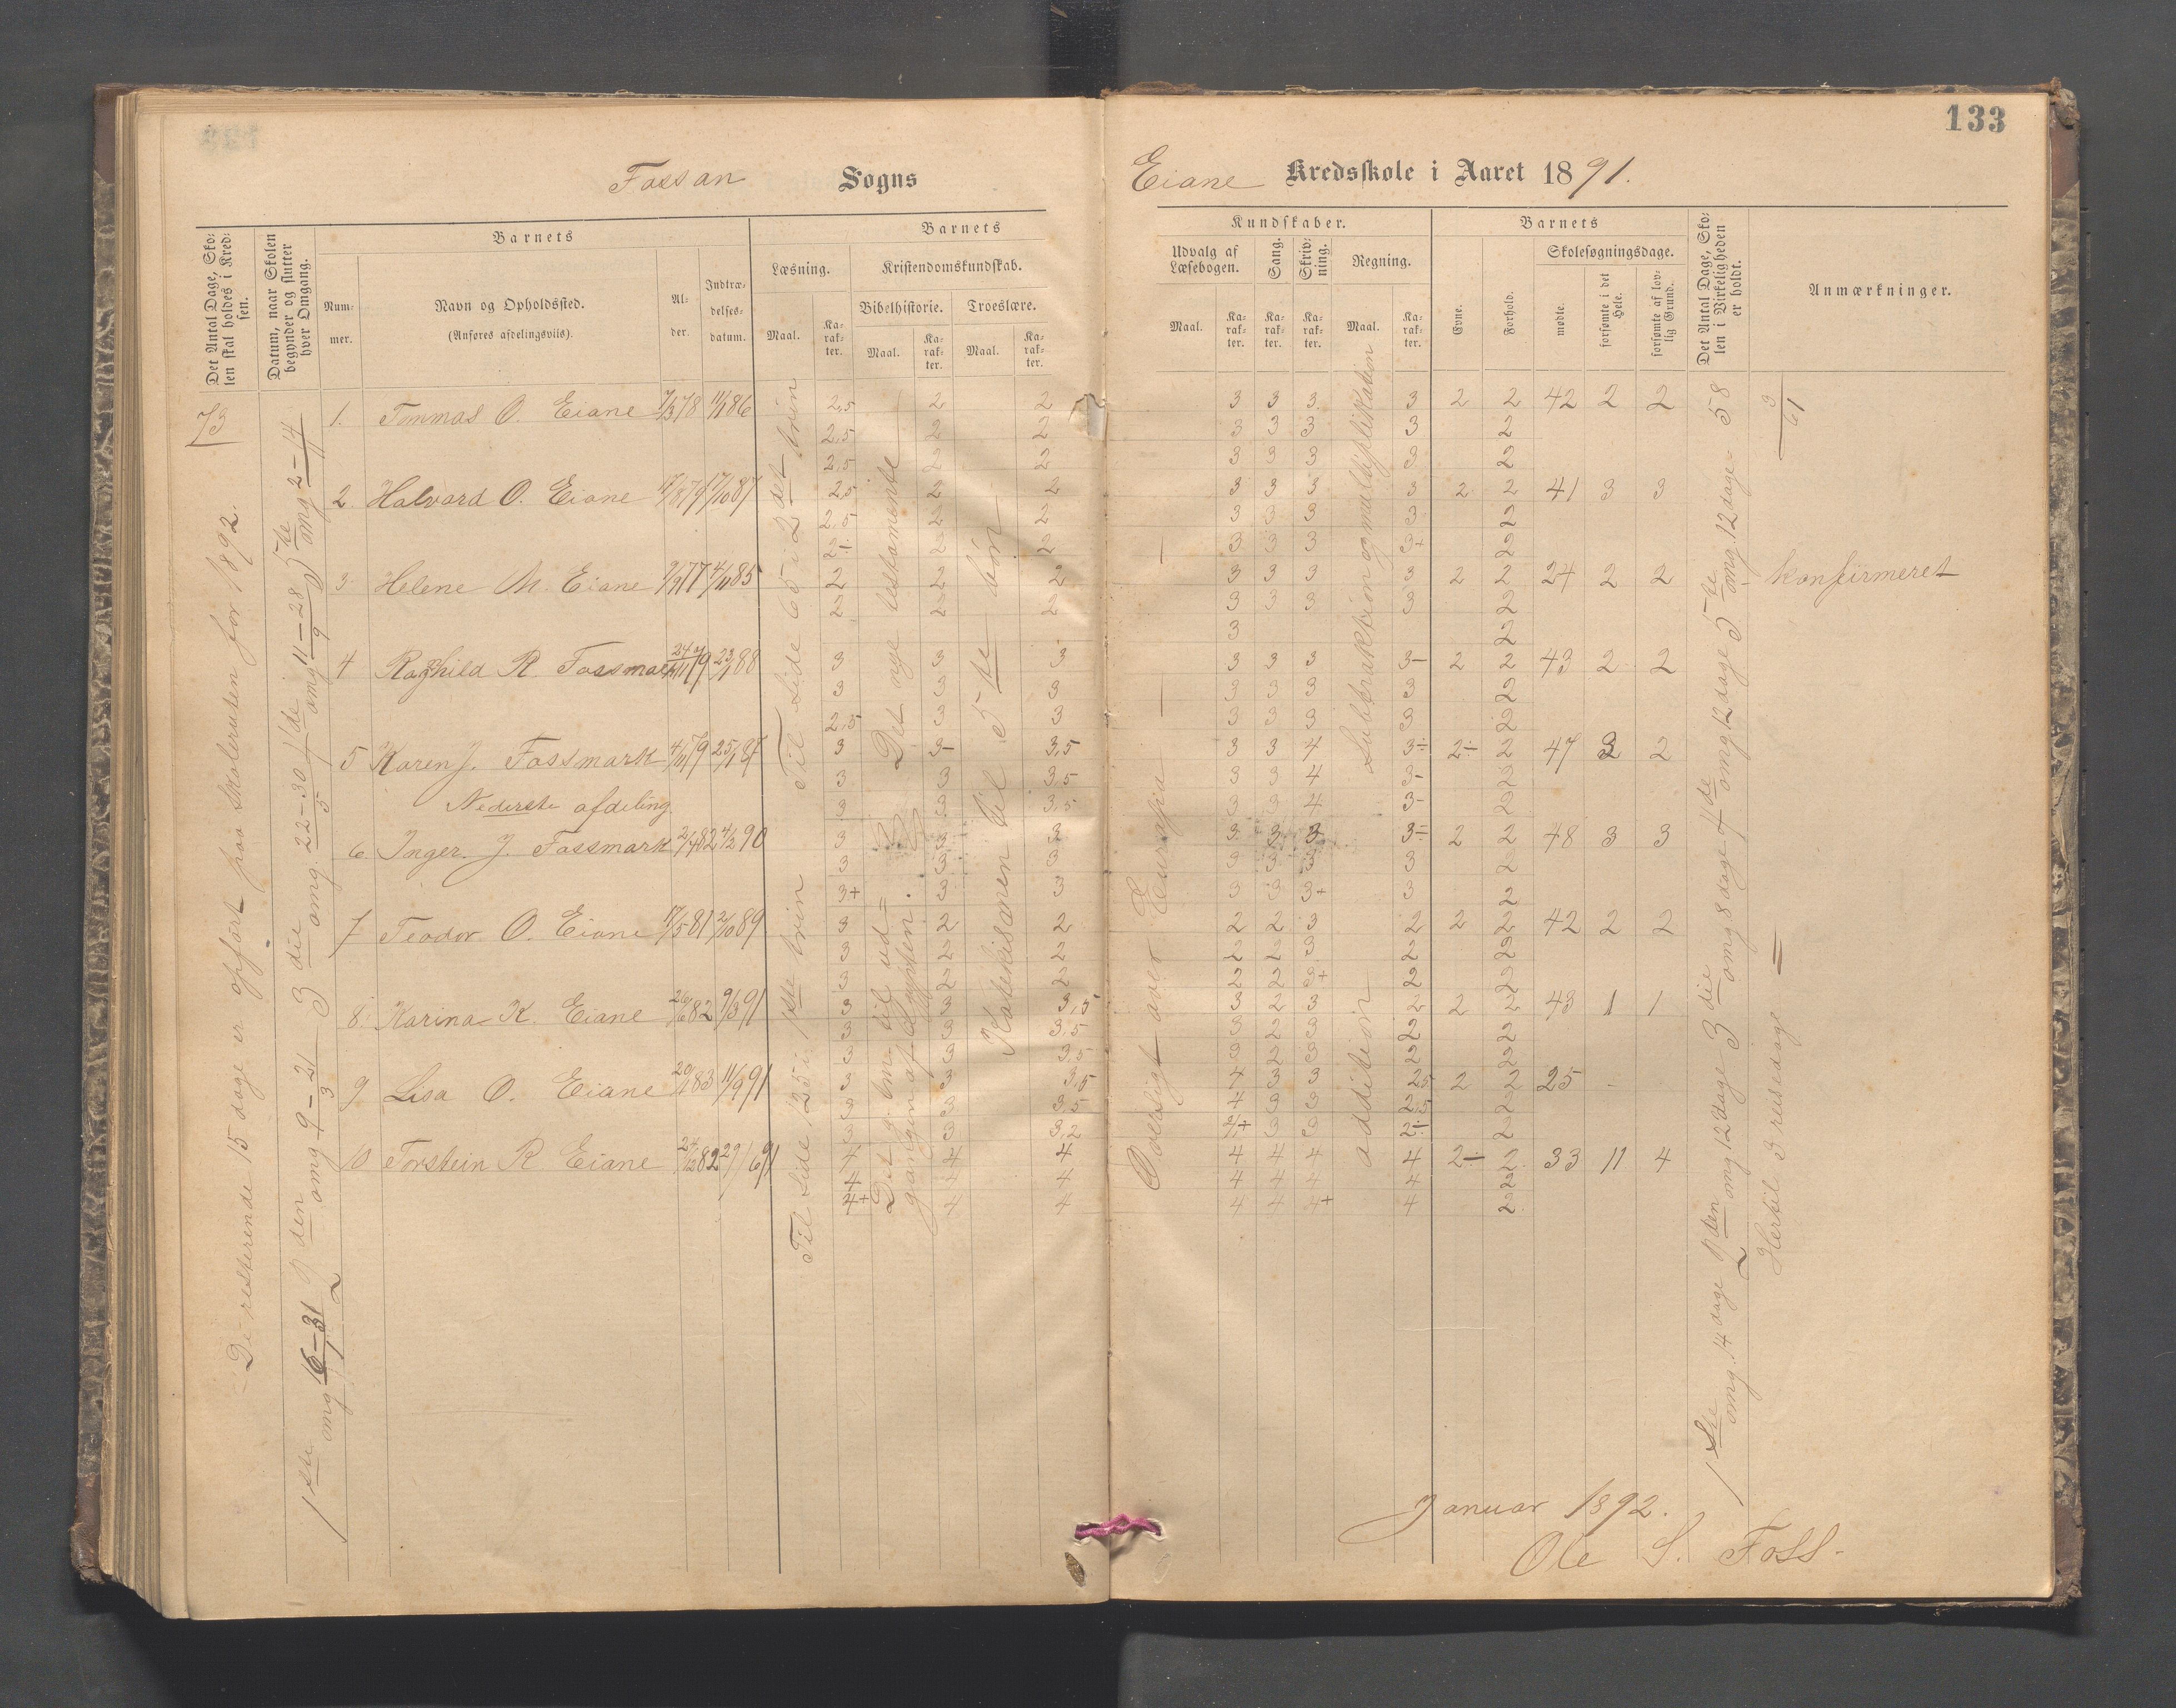 133
Fossan Sogns
Eiane Kredsskole i Aaret 1891.
Det Antal Dage, Skolen skal holdes i Kredsen.
Datum, naar Skolen begynder og slutter hver Omgang.
Barnets
Nummer.
Navn og Opholdssted.
(Anføres afdelingsviis).
Alder.
Indtrædelsesdatum.
Barnets
Læsning.
Maal.
Karakter.
Kristendomskundskab.
Bibelhistorie.
Maal.
Karakter.
Troeslære.
Maal.
Karakter.
Kundskaber.
Udvalg af Læsebogen.
Maal.
Karakter.
Sang.
Karakter.
Skrivning.
Karakter.
Regning.
Maal.
Karakter.
Barnets
Evne.
Forhold.
Skolesøgningsdage.
mødte.
forsømte i det Hele.
forsømte af lovlig Grund.
Det Antal Dage, Skolen i Virkeligheden er holdt.
Anmærkninger.
73
De resterende 15 dage er opført paa skoleruten for 1892.
1ste omg 16–31/1 2den omg 9–21/3 3die omg. 22–30/5 4de omg 11–28/9 5te omg 2–14
1. Tommas O. Eiane 7/3 78 11/1 86 2,5 2 2 3 3 3 3 2 2 42 2 2
2,5 2 2 3 3 3 3 2
2,5 2 2 3 3 3 3 2
2. Halvard O. Eiane 17/10 87 2,5 2 2 3 3 3 3 2 2 41 3 3
2,5 2 2 3 3 3 3 2
2÷ 2 2 3 3 3 3+ 2
3 Helene M. Eiane 77 4/11 85 2 2 2 3 3 3 3 2 2 24 2 2 Konfirmeret
2 2 2 3 3 3 3 2
3 2
4 Raghild R. Fossmark 79 23/1 88 3 3 3 3 3 3 3– 2 2 43 2 2
3 3 3 3 3 3 3 2
2,5 3 3 3 3 3 3 2
5 Karen J. Fossmark 4/11 79 25/1 87 3 3– 3,5 3 3 4 3÷ 2÷ 2 47 3 2
3 3 3,5 3 3 4 3– 2
3 3 3,5 3 3 4 3– 2
Nederste afdeling
6 Inger. J. Fossmark 2/4 82 4/2 90 3 3 3 3 3 3 3÷ 2 2 48 3 3
3 3 3 3 3 3 3 2
3+ 3 3 3 3 3+ 3 2
7 Teodor O. Eiane 17/5 81 2/10 89 3 2 2 2 2 3 2 2 2 42 2 2
3 2 2 2 2 3 2 2
3 2 2 2 2 3+ 2 2
8. Karina K. Eiane 26/6 82 9/3 91 3 3 3,5 3 2 3 2 2 2 43 1 1
3 3 3,5 3 2 3 2 2
3 3 3,5 3 2 3 2 2
9 Lisa O. Eiane 20/1 83 11/9 91 3 3 3,5 4 3 3 2,5 2 2 25 –
3 3 3,5 4 3 3 2,5 2
3 3 3,2 4+ 3 3 2÷ 2
10 Torstein R Eiane 24/12 82 4 4 4 4 4 4 4 2÷ 2 33 11 4
4 4 4 4 4 4 4 2
4+ 4 4 4 4 4+ 4 2
Til side 65 i 2det trin
Til side 125 i 1ste trin
Det nye testamente
Det g. tm. til udgangen af Ægypten.
Katekismen til 5te bøn
Oversigt over Europa
Subbtraktion og multiplikation
addition
1ste omg. 14 dage 2den omg 12 dage 3die omg 8 dage 4de omg 12 dage 5te omg. 12 dage = 58
3
61
Hertil 3 reisedage =
Januar 1892.
Ole S. Foss.